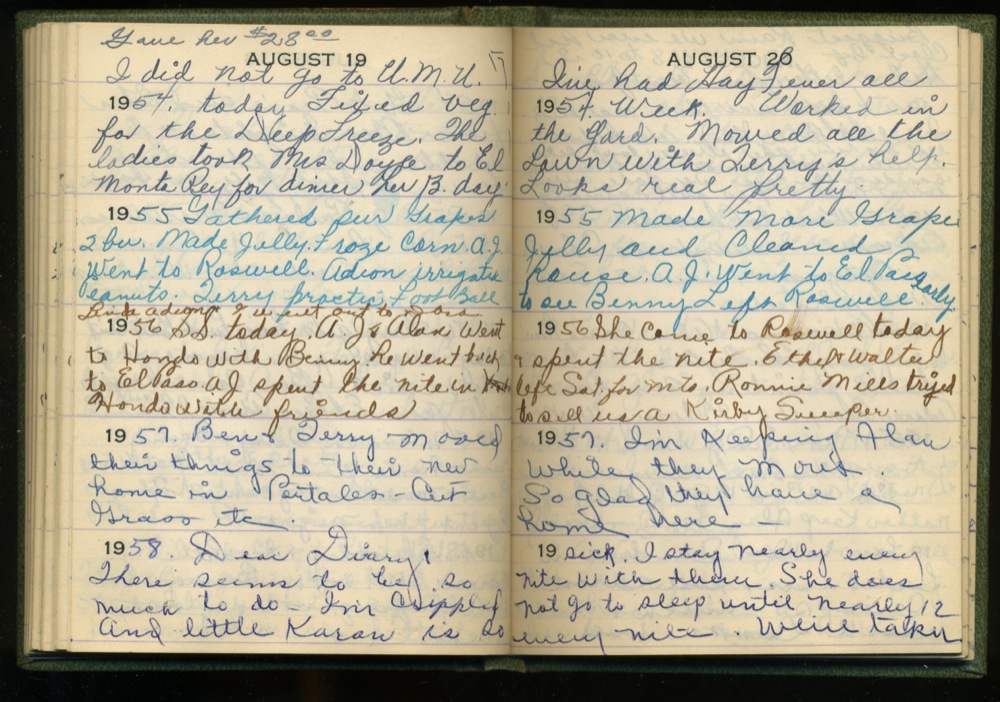 Gave her $28.00
AUGUST 19
I did not go to U.M.U.
1954. today Fixed veg.
for the Deep Freeze. The
ladies took Mrs Doyce to El
Monte Rey for dinner her B. day
1955 Gathered our Grapes
2 bu. Made Jelly. Froze Corn. A.J.
Went to Roswell. Adion irrigates
Peanuts. Terry practic Foot Ball
out to
1956 S.S. today. A.J & Alan went
to Hondo with Benny. he went back
to El Paso. AJ spent the nite in
Hondo with friends
1957. Ben & Terry moved
their things to their new
home in Portales - Cut
Grass etc.
1958. Dear Diary,
There seems to be so
much to do - I'm Crippled
and little Karan is so
AUGUST 20
I've had Hay Fever all
1954. Week. Worked in
the Yard. Mowed all the
Lawn with Terry's help.
Looks real pretty.
1955 Made More Grape
Jelly and Cleaned
house. A.J. Went to El Paso
to see Benny Left Roswell early
1956 She come to Roswell today
& spent the nite. Ethel & Walter
left Sat. for Mts. Ronnie Mills tryed
to sell us a Kirby Sweeper.
1957. I'm Keeping Alan
while they move.
So glad they have a
home here -
19 sick. I stay nearly every
nite with them. She does
not go to sleep until nearly 12
every nite. We're taken